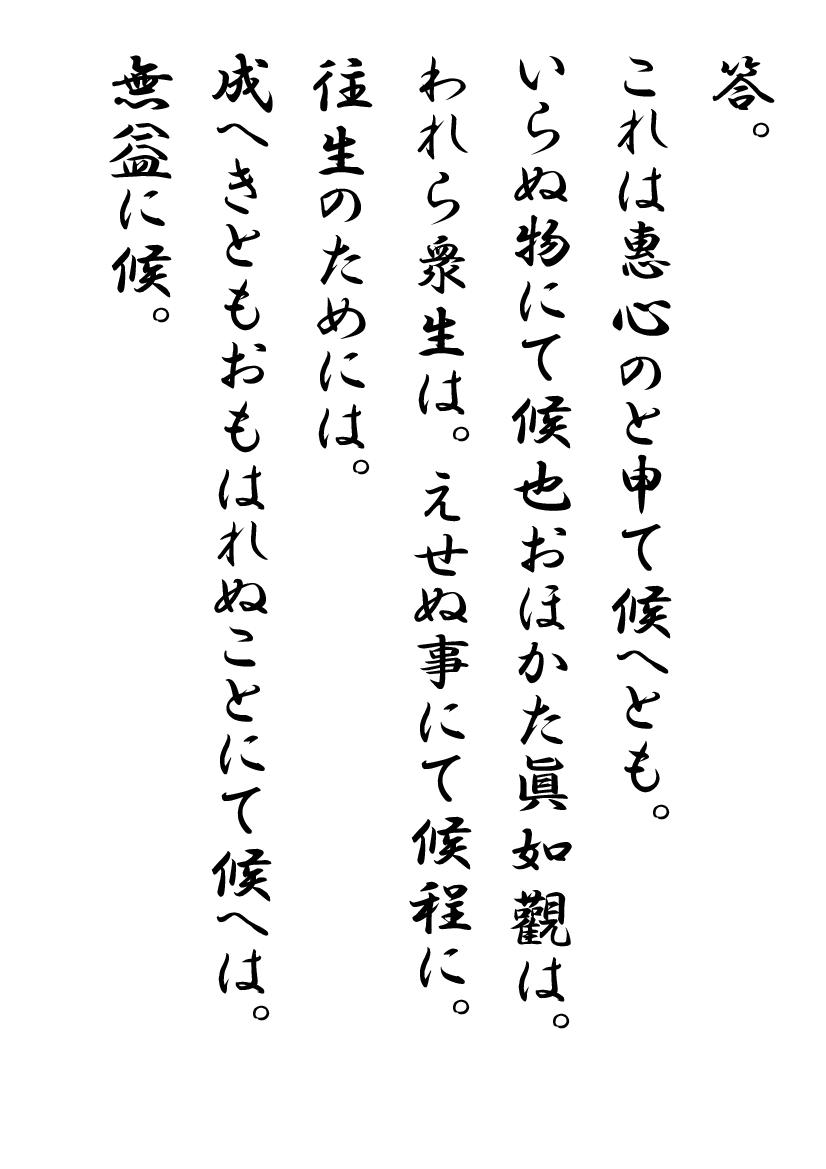 答。
これは惠心のと申て候へとも。
いらぬ物にて候也おほかた眞如觀は。
われら衆生は。えせぬ事にて候程に。
往生のためには。
成へきともおもはれぬことにて候へは。
無益に候。